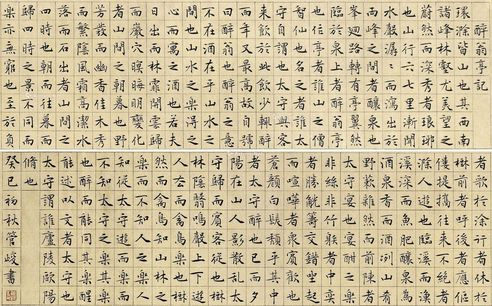 醉翁亭記
環滁皆山也其西南
諸峰林壑尤美望之
蔚然而深秀者琅琊
也山行六七里漸聞
水聲潺潺而瀉出於
兩峰之間者釀泉也
峯迴路轉有亭翼然
臨於泉上者醉翁亭
也作亭者誰山之僧
智仙也名之者誰太
守自謂也太守與客
來飲於此飲少輒醉
而年又最高故自號
曰醉翁也醉翁之意
不在酒在乎山水之
間也山水之樂得之
心而寓之酒也若夫
日出而林霏開雲歸
而巖穴暝晦明變化
者山間之朝暮也野
芳發而幽香佳木秀
而繁陰風霜高潔水
落而石出者山間之
四時也朝而往暮而
歸四時之景不同而
樂亦無窮也至於負
者歌於塗行者休於
樹前者呼後者應傴
僂提攜往來不絕者
滁人遊也臨溪而漁
溪深而魚肥釀泉為
酒泉香而酒洌山肴
野蔌雜然而前陳者
太守宴也宴酣之樂
非絲非竹射者中弈
者勝觥籌交錯起坐
而諠譁者眾賓歡也
蒼顏白髮頹乎其中
者太守醉也已而夕
陽在山人影散亂太
守歸而賓客從也樹
林陰翳鳴聲上下遊
人去而禽鳥樂也
然而禽鳥知山林之
樂而不知人之樂人
知從太守遊而樂而
不知太守之樂其樂
也醉能同其樂醒
能述以文者太守也
太守謂誰廬陵歐陽
脩也
癸巳初秋管峻書